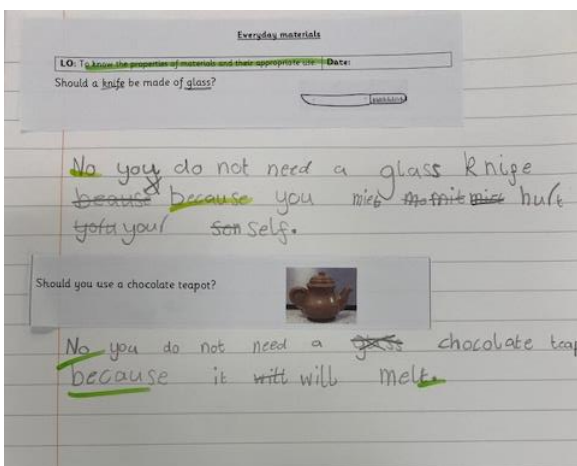 Everyday materials
LO: To know the properties of materials and their appropriate use. Date:
Should a knife be made of glass?
No you do not need a glass knige
beause because you hurt
your self.
Should you use a chocolate teapot?
No you do not need a glass chocolate teap
because it will will melt.